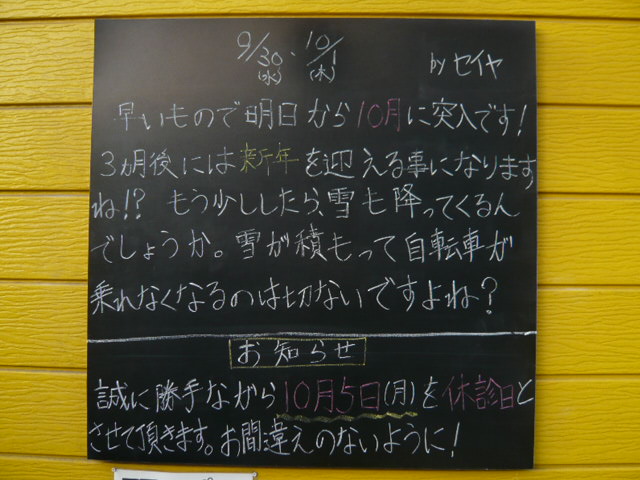 9/30・10/1 by セイヤ
(水) (木)
早いもので明日から10月に突入です!
3ヵ月後には新年を迎える事になります
ね!? もう少ししたら、雪も降ってくるん
でしょうか。雪が積もって自転車が
乗れなくなるのは切ないですよね?
お知らせ
誠に勝手ながら10月5日(月)を休診日と
させて頂きます。お間違えのないように!